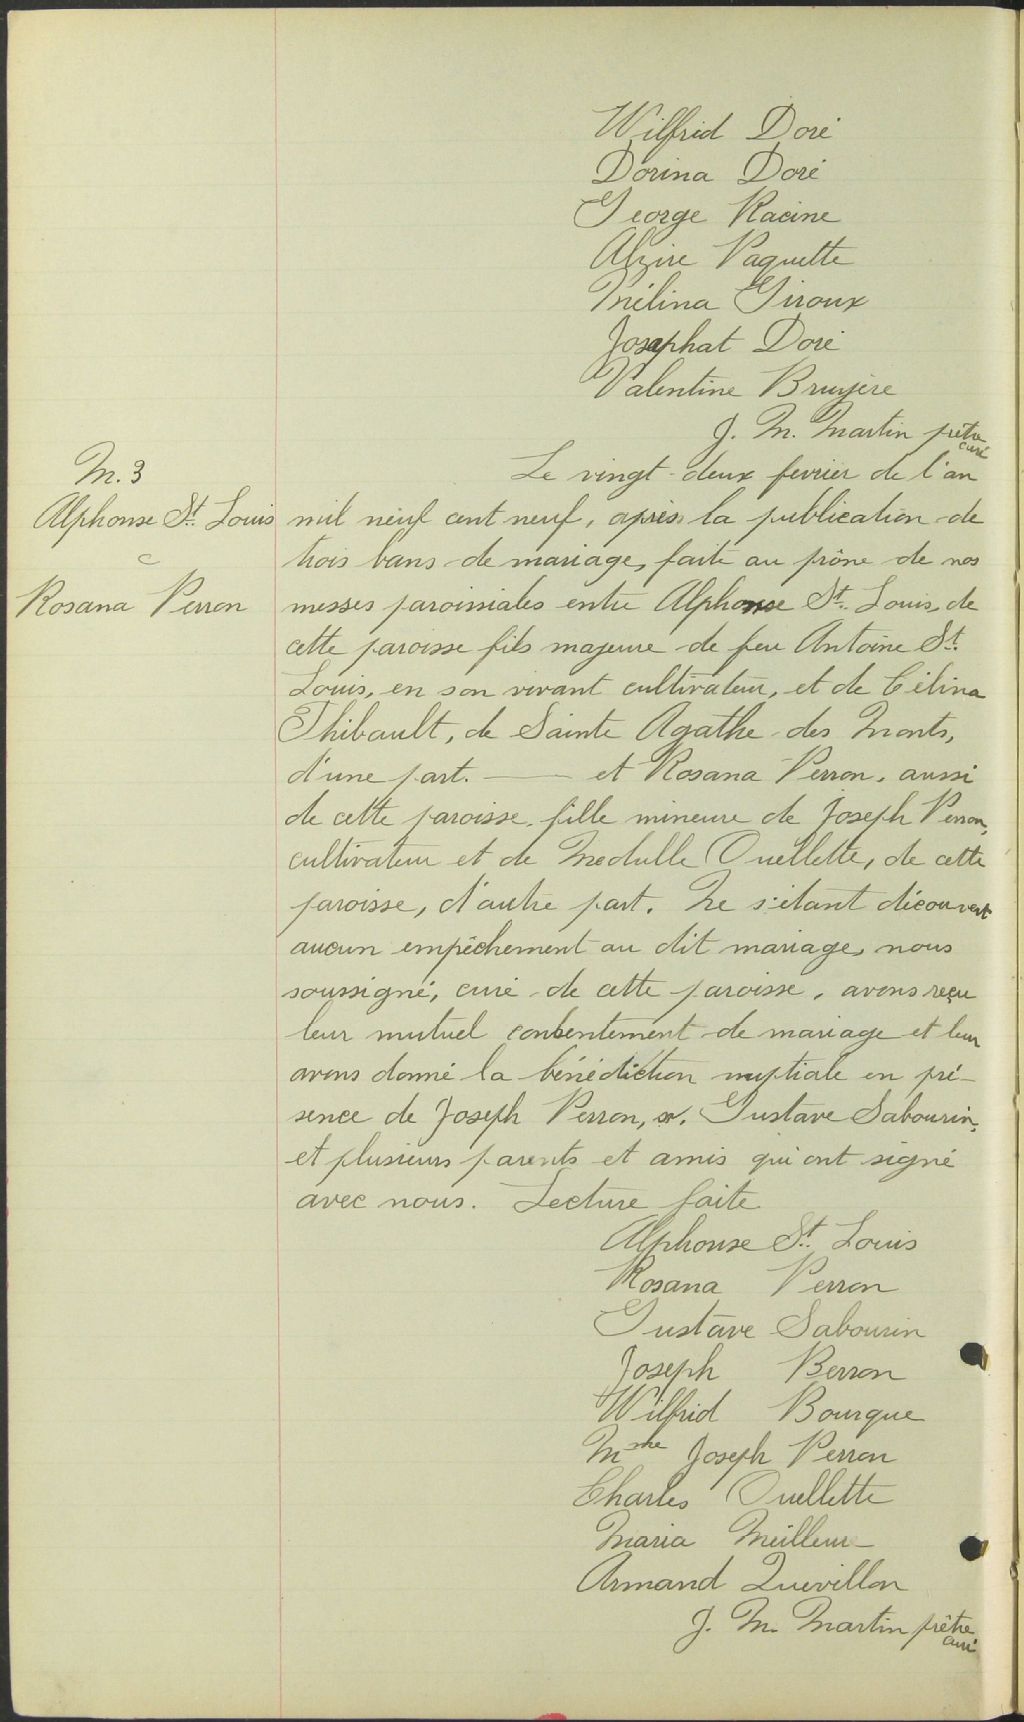 Wilfrid Doré
Dorina Doré
George Racine
Alzire Paquette
Mélina Giroux
Josaphat Doré
Valentine Bruyère
J. M. Martin prêtre
curé
M. 3
Alphonse St. Louis
&
Rosana Perron
Le vingt-deux fevrier de l'an
mil neuf cent neuf, après la publication de
trois bans de mariage, faite au prône de nos
messes paroissiales entre Alphonse St. Louis, de
cette paroisse fils majeure de feu Antoine St.
Louis, en son vivant cultivateur, et de Célina
Thibault, de Sainte Agathe des Monts,
d'une part. — et Rosana Perron, aussi
de cette paroisse, fille mineure de Joseph Perron,
cultivateur et de Medulle Ouellette, de cette
paroisse, d'autre part. Ne s'étant découvert
aucun empêchement au dit mariage, nous
soussigné, curé de cette paroisse, avons reçu
leur mutuel consentement de mariage et leur
avons donné la bénédiction nuptiale en pré-
sence de Joseph Perron, Gustave Sabourin,
et plusieurs parents et amis qui ont signé
avec nous. Lecture faite
Alphonse St. Louis
Rosana Perron
Gustave Sabourin
Joseph Berron
Wilfrid Bourque
Mme Joseph Perron
Charles Ouellette
Maria Meilleure
Armand Quevillon
J. M. Martin prêtre
curé